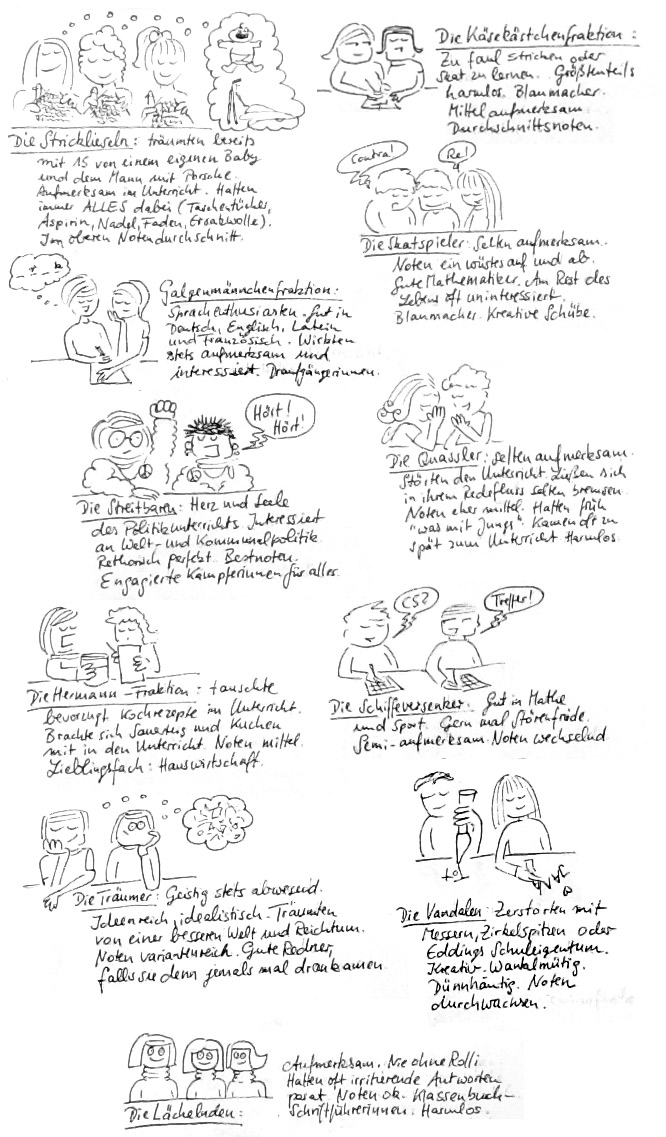 Die Stricklieseln: träumten bereits
mit 15 von einem eigenen Baby
und dem Mann mit Porsche.
Aufmerksam im Unterricht. Hatten
immer ALLES dabei (Taschentücher,
Aspirin, Nadel, Faden, Ersatzwolle).
Im oberen Notendurchschnitt.
Die Käsekästchenfraktion:
Zu faul stricken oder
Skat zu lernen. Größtenteils
harmlos. Blaumacher.
Mittelaufmerksam
Durchschnittsnoten.
Contra!
Re!
Die Skatspieler: Selten aufmerksam.
Noten ein wüstes auf und ab.
Gute Mathematiker. Am Rest des
Lebens oft uninteressiert.
Blaumacher. Kreative Schübe.
Galgenmännchenfraktion:
Sprachenthusiasten. Gut in
Deutsch, Englisch, Latein
und Französisch. Wirkten
stets aufmerksam und
interessiert. Draufgängerinnen.
Hört!
Hört!
Die Streitbaren: Herz und Seele
des Politikunterrichts. Interessiert
an Welt- und Kommunalpolitik
Rethorisch perfekt. Bestnoten.
Engagierte Kämpferinnen für alles.
Die Quassler: selten aufmerksam.
Störten den Unterricht. Ließen sich
in ihrem Redefluss selten bremsen.
Noten eher mittel. Hatten früh
"was mit Jungs". Kamen oft zu
spät zum Unterricht. Harmlos.
Die Hermann-Fraktion: tauschte
bevorzugt Kochrezepte im Unterricht.
Brachte sich Sauerteig und Kuchen
mit in den Unterricht. Noten mittel.
Lieblingsfach: Hauswirtschaft.
C5?
Treffer!
Die Schiffeversenker: Gut in Mathe
und Sport. Gern mal Störenfriede.
Semi-aufmerksam. Noten wechselnd
Die Träumer: Geistig stets abwesend.
Ideenreich, idealistisch. Träumten
von einer besseren Welt und Reichtum.
Noten variantenreich. Gute Redner,
falls sie denn jemals mal drankamen
Die Vandalen: Zerstörten mit
Messern, Zirkelspitzen oder
Eddings Schuleigentum.
Kreativ. Wankelmütig.
Dünnhäutig. Noten
durchwachsen.
Die Lächelnden:
Aufmerksam. Nie ohne Rolli
Hatten oft irritierende Antworten
parat. Noten ok. Klassenbuch-
Schriftführerinnen. Harmlos.